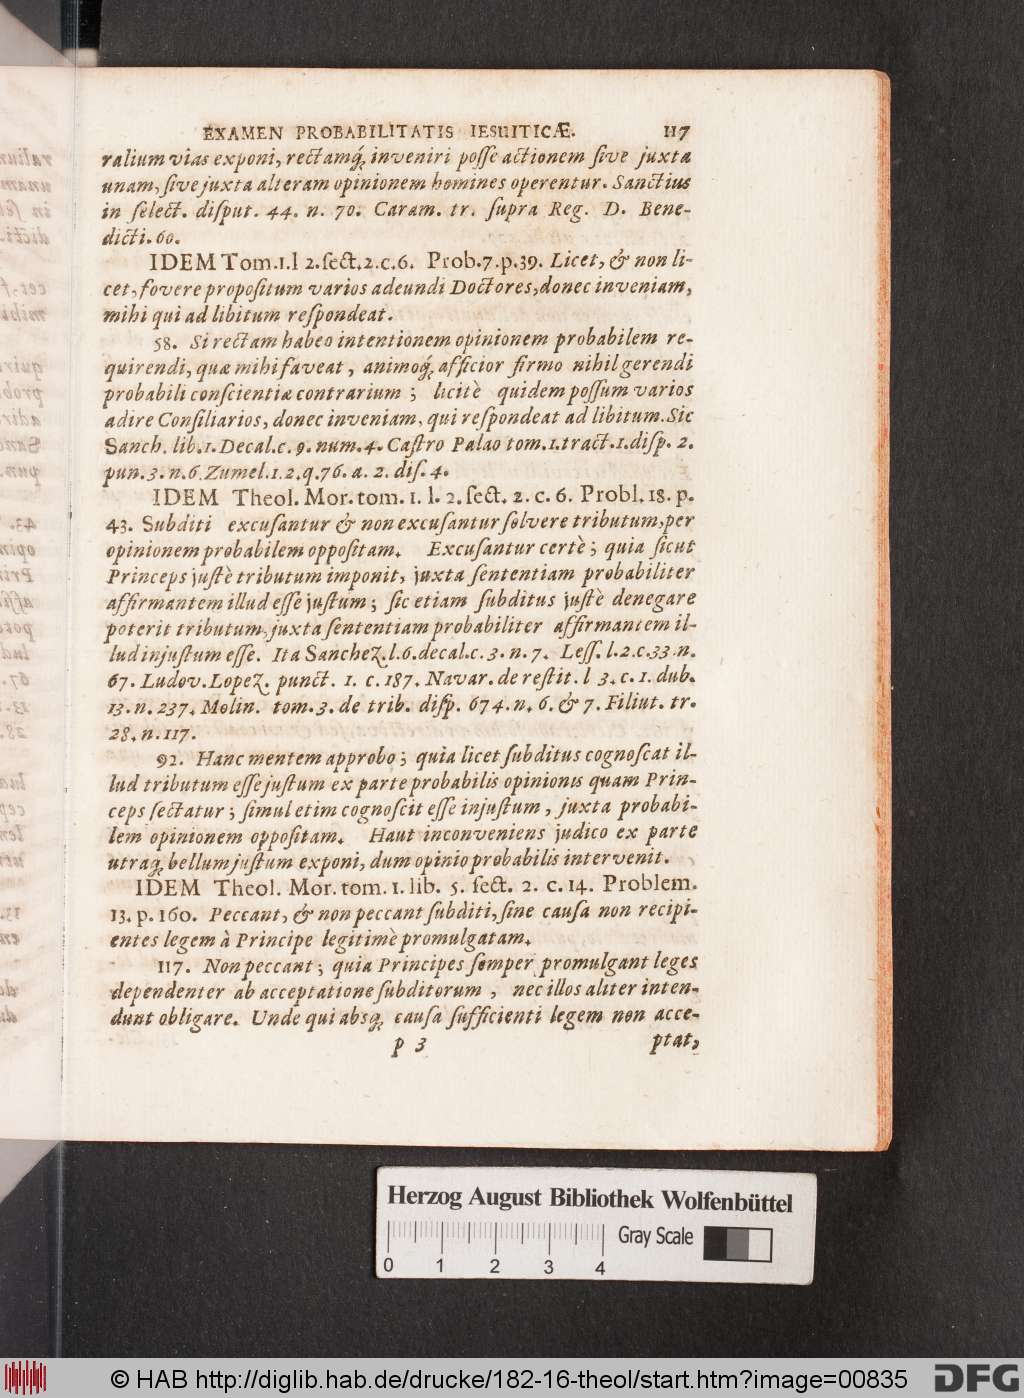 EXAMEN PROBABILITATIS IESUITICÆ. 117
ralium vias exponi, rectamq́; inveniri posse actionem sive juxta
unam, sive juxta alteram opinionem homines operentur. Sanctius
in select. disput. 44. n. 70. Caram. tr. supra Reg. D. Bene-
dicti. 60.
IDEM Tom.1.l 2.sect.2.c.6. Prob.7.p.39. Licet, & non li-
cet, fovere propositum varios adeundi Doctores, donec inveniam,
mihi qui ad libitum respondeat.
58. Si rectam habeo intentionem opinionem probabilem re-
quirendi, quæ mihi faveat, animoq́; afficior firmo nihil gerendi
probabili conscientiæ contrarium; licitè quidem possum varios
adire Consiliarios, donec inveniam, qui respondeat ad libitum. Sic
Sanch. lib.1. Decal.c. 9. num.4. Castro Palao tom.1.tract.1.disp. 2.
pun.3.n.6. Zumel.1.2.q.76. a. 2. dis. 4.
IDEM Theol. Mor. tom. 1. l. 2. sect. 2. c. 6. Probl. 18. p.
43. Subditi excusantur & non excusantur solvere tributum, per
opinionem probabilem oppositam. Excusantur certè; quia sicut
Princeps justè tributum imponit, juxta sententiam probabiliter
affirmantem illud esse justum; sic etiam subditus justè denegare
poterit tributum, juxta sententiam probabiliter affirmantem il-
lud injustum esse. Ita Sanchez. l.6.decal.c. 3. n. 7. Less. l.2.c.33.n.
67. Ludov. Lopez. punct. 1. c. 187. Navar. de restit. l 3. c. 1. dub.
13. n. 237. Molin. tom. 3. de trib. disp. 674. n. 6. & 7. Filiut. tr.
28. n. 117.
92. Hanc mentem approbo; quia licet subditus cognoscat il-
lud tributum esse justum ex parte probabilis opinionis quam Prin-
ceps sectatur; simul etim cognoscit esse injustum, juxta probabi-
lem opinionem oppositam. Haut inconveniens judico ex parte
utraq; bellum justum exponi, dum opinio probabilis intervenit.
IDEM Theol. Mor. tom. 1. lib. 5. sect. 2. c. 14. Problem.
13. p. 160. Peccant, & non peccant subditi, sine causa non recipi-
entes legem à Principe legitimè promulgatam.
117. Non peccant; quia Principes semper promulgant leges
dependenter ab acceptatione subditorum, nec illos aliter inten-
dunt obligare. Unde qui absq; causa sufficienti legem non acce-
p 3 ptat,
Herzog August Bibliothek Wolfenbüttel
Gray Scale
0 1 2 3 4
© HAB http://diglib.hab.de/drucke/182-16-theol/start.htm?image=00835
DFG